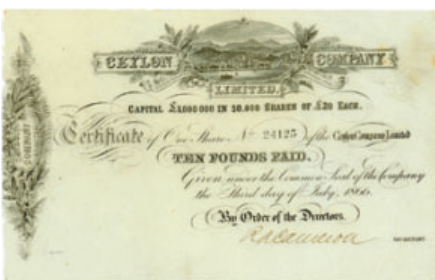 CEYLON COMPANY
LIMITED.
CAPITAL £1,000,000 IN 50,000 SHARES OF £20 EACH.
Certificate of One Share No 24125 of the Ceylon Company Limited
TEN POUNDS PAID.
Given under the Common Seal of the Company
the Third day of July, 1866.
By Order of the Directors.